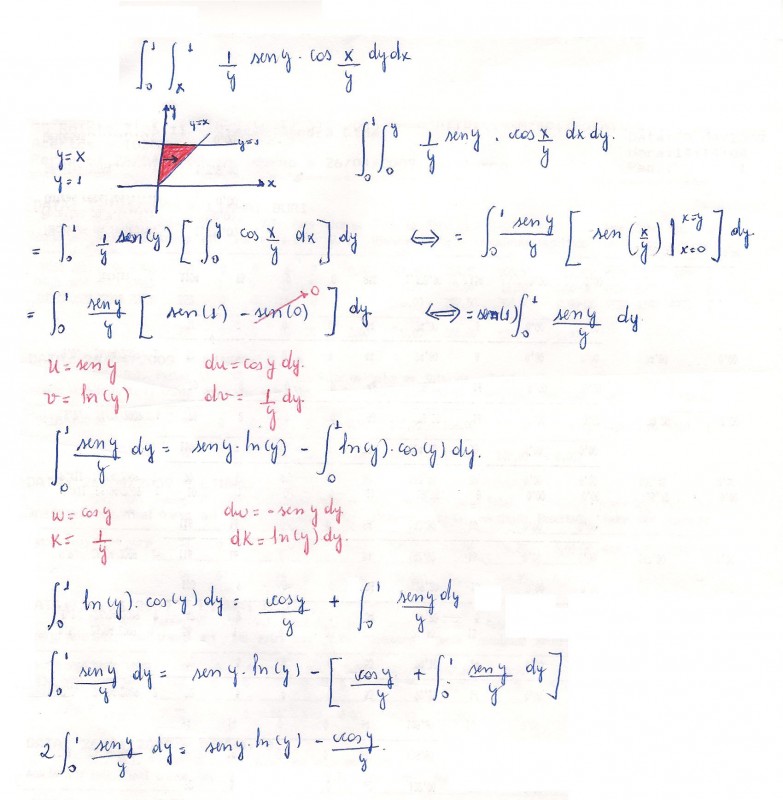 ∫₀¹ ∫ₓ¹ 1/y sen y · cos x/y dy dx
y
y=x
y=1
x
y=x
y=1
∫₀¹ ∫₀ʸ 1/y sen y · cos x/y dx dy.
= ∫₀¹ 1/y sen(y) [ ∫₀ʸ cos x/y dx ] dy ⇔ = ∫₀¹ sen y/y [ sen(x/y) |ₓ₌₀ˣ⁼ʸ ] dy.
= ∫₀¹ sen y/y [ sen(1) - sen(0) 0 ] dy ⇔ = sen(1) ∫₀¹ sen y/y dy
u = sen y du = cos y dy.
v = ln(y) dv = 1/y dy.
∫₀¹ sen y/y dy = sen y · ln(y) - ∫₀¹ ln(y) · cos(y) dy.
w = cos y dw = - sen y dy
k = 1/y dk = ln(y) dy.
∫₀¹ ln(y) · cos(y) dy = cos y/y + ∫₀¹ sen y dy/y
∫₀¹ sen y/y dy = sen y · ln(y) - [ cos y/y + ∫₀¹ sen y/y dy ]
2 ∫₀¹ sen y/y dy = sen y · ln(y) - cos y/y.